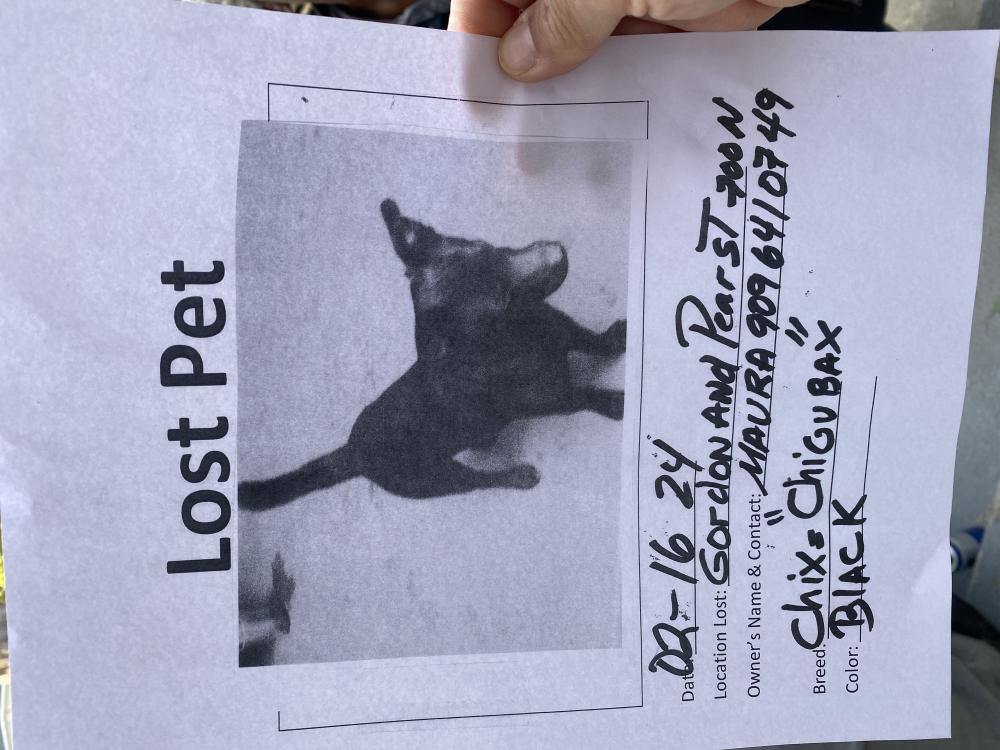 Lost Pet
Date: 02-16 24
Location Lost: GordoN AND Pear ST 700 N
Owner's Name & Contact: MAURA 909 641 0749
Breed: Chix= "ChiGUBAX"
Color: BlACK